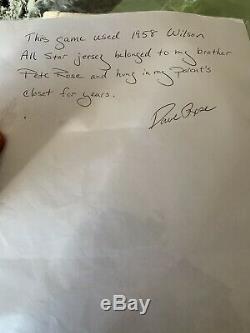 This game used 1958 Wilson
All Star jersey belonged to my brother
Pete Rose and hung in my parent's
closet for years.
Dave Rose